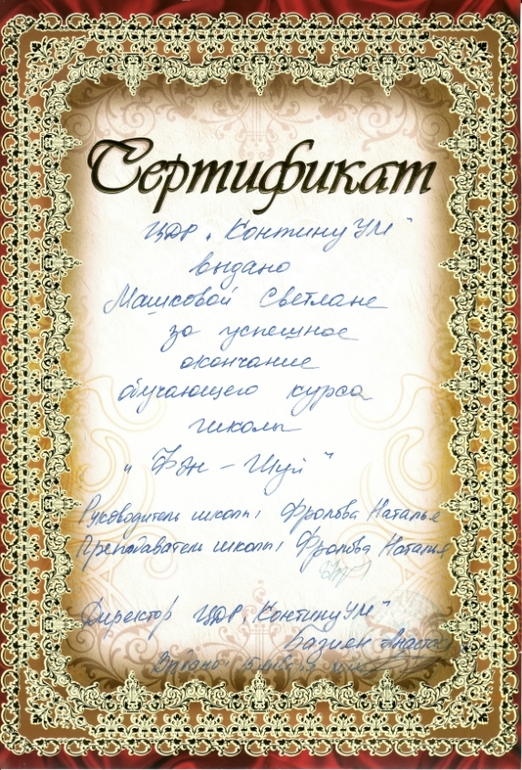 Сертификат
ЦДР „КонтинуУМ"
выдано
Машковой Светлане
за успешное
окончание
обучающего курса
школы
„Фэн-Шуй"
Руководитель школы: Фролова Наталья
Преподаватель школы: Фролова Наталья
Директор ЦДР „КонтинуУМ"